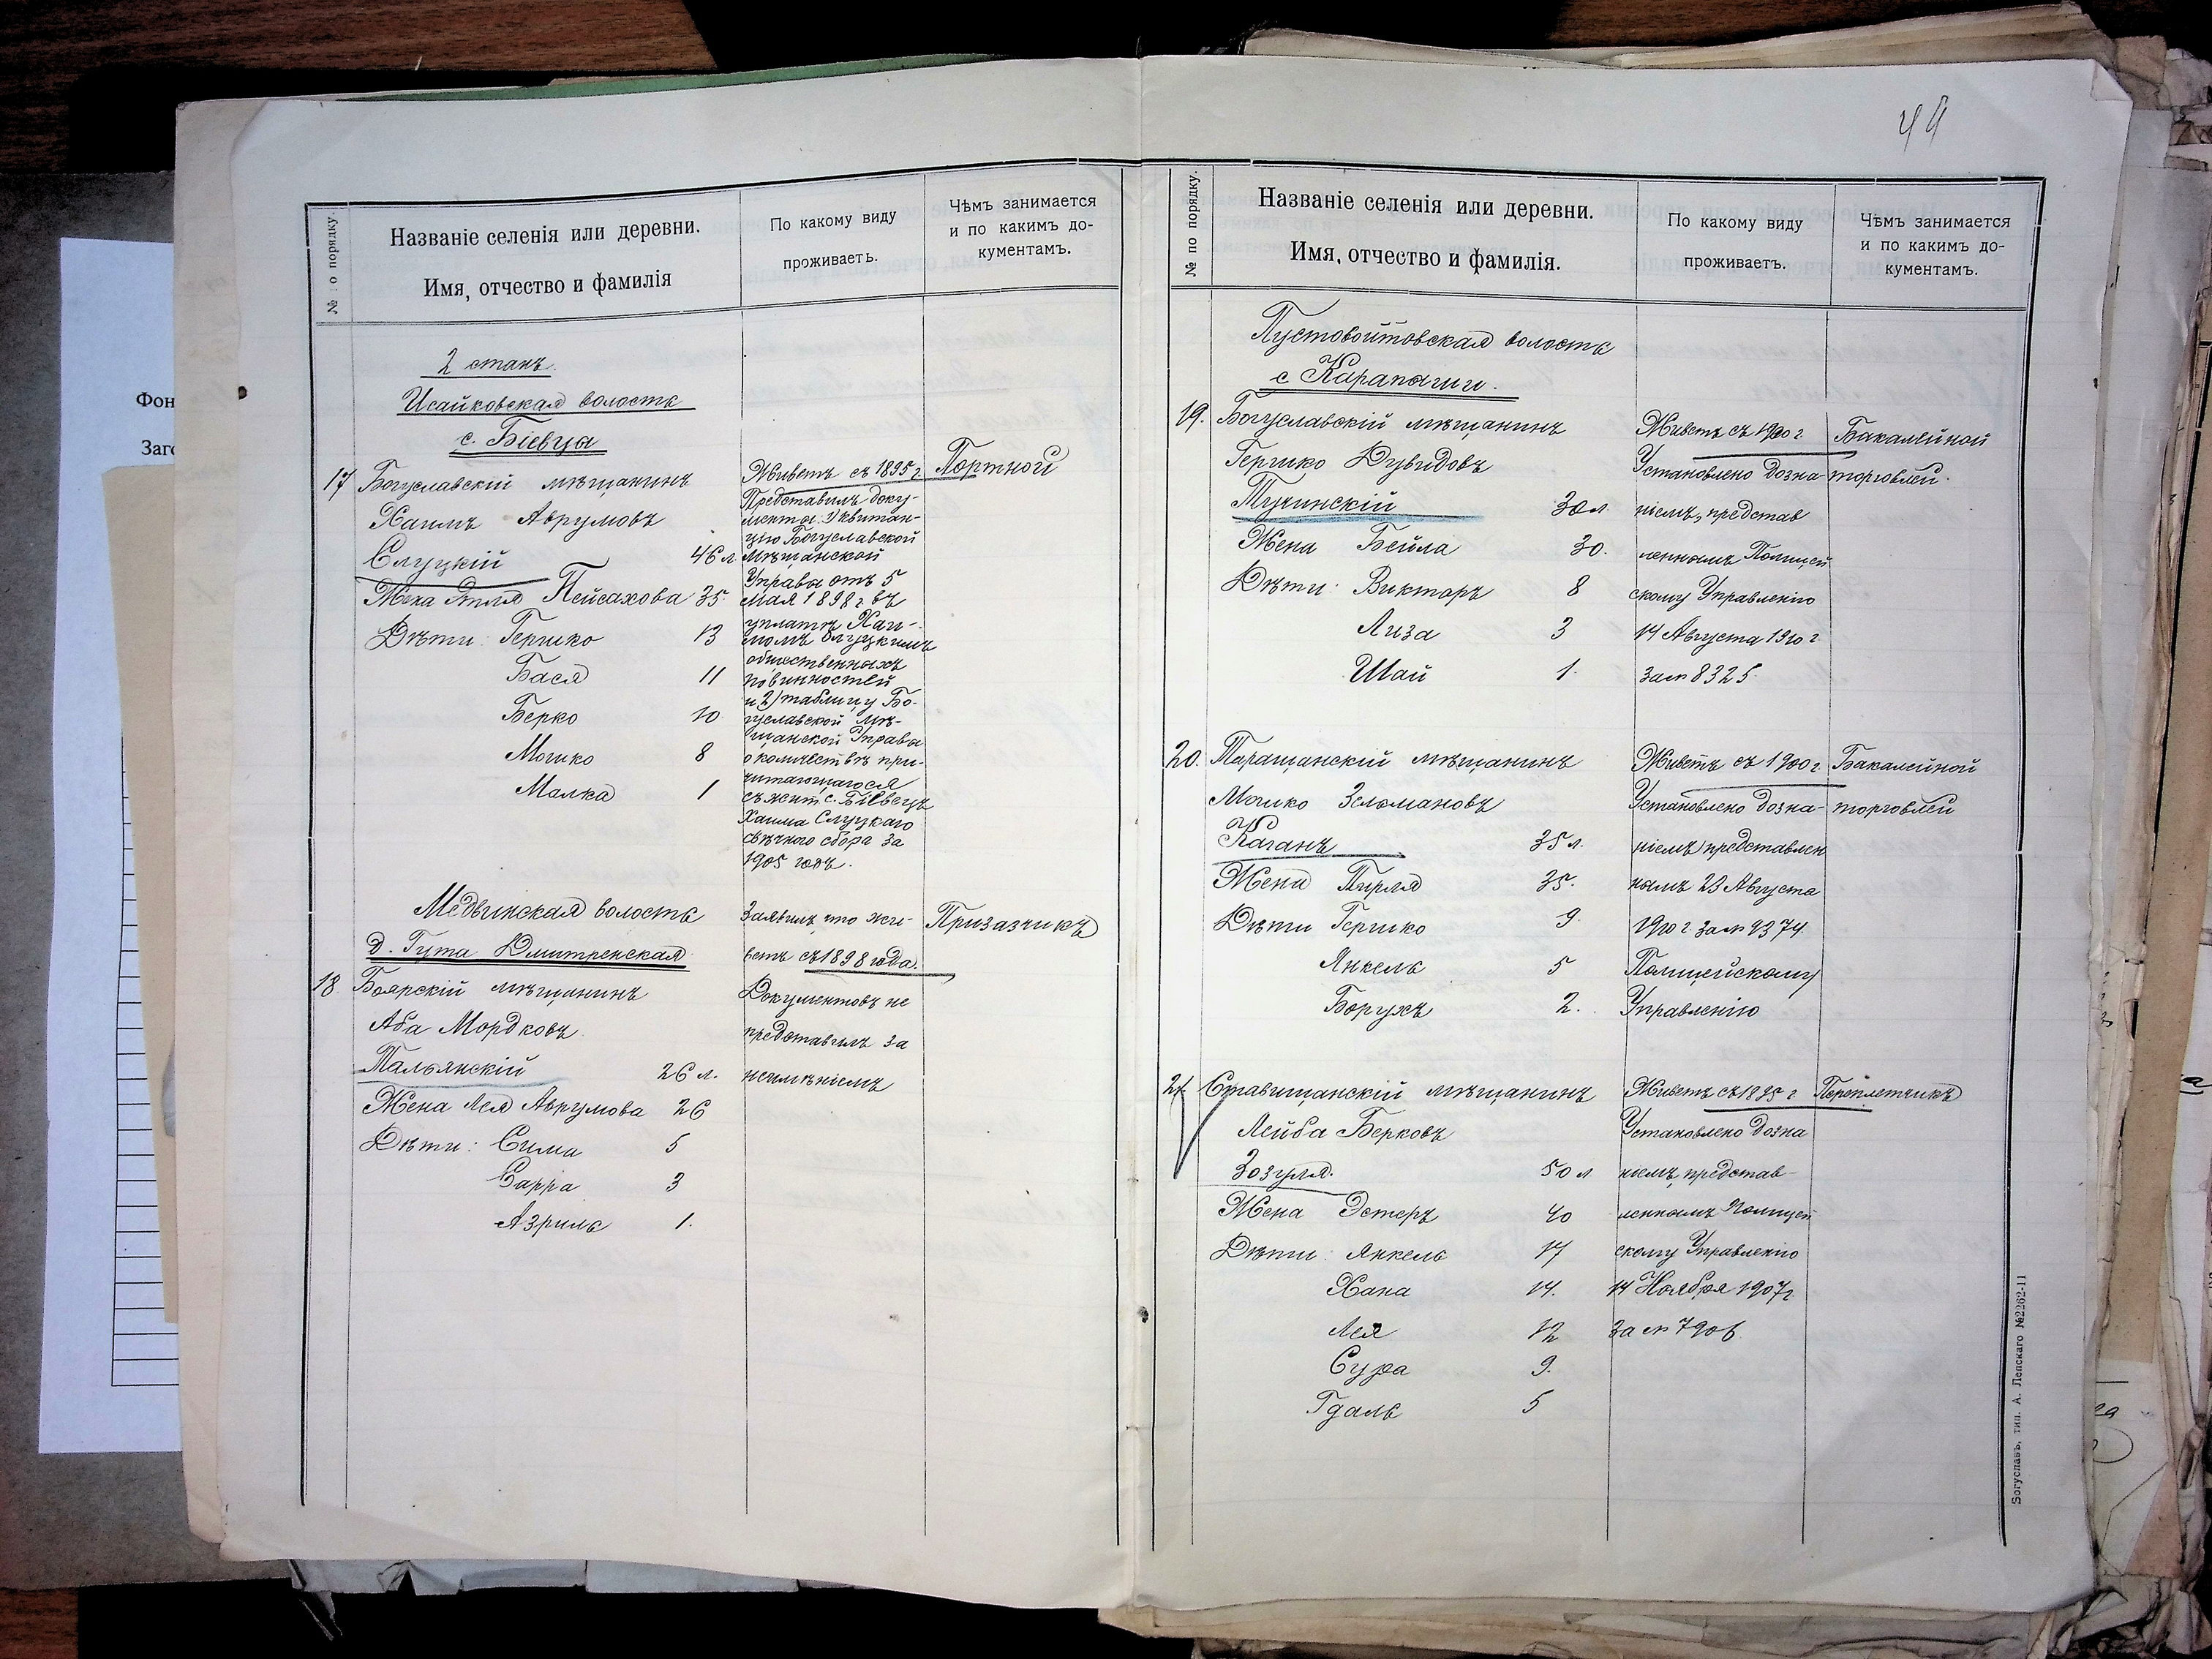 Фон
Заг
№ о порядку.
Названіе селенія или деревни.
Имя, отчество и фамилія
По какому виду
проживаеть.
Чѣмъ занимается
и по какимъ до-
кументамъ.
2 станъ.
Исайковская волость
с. Біевцы
17 Богуславскій мѣщанинъ
Хаимъ Аврумовъ
Слуцкій 46 л.
Жена Этля Пейсахова 35.
Дѣти: Гершко 13
Бася 11
Берко 10
Мошко 8
Малка 1
Живетъ съ 1895 г.
Представилъ доку-
менты: 1) квитан-
цію Богуславской
мѣщанской
Управы отъ 5
мая 1898 г. въ
уплатѣ Хаи-
момъ Слуцкимъ
общественныхъ
повинностей
и 2) таблицу Бо-
гуславской Мѣ-
щанской Управы
о количествѣ при-
читающагося
съ жит. с. Біевецъ
Хаима Слуцкаго
свѣчного сбора за
1905 годъ.
Портной
Медвинская волость
д. Гута Дмитренская
18 Боярскій мѣщанинъ
Аба Мордковъ
Тальянскій 26 л.
Жена Лея Аврумова 26
Дѣти: Сима 5
Сарра 3
Азриль 1.
Заявилъ, что жи-
ветъ съ 1898 года.
Документовъ не
представилъ за
неимѣніемъ
Приказчикъ
44
№ по порядку.
Названіе селенія или деревни.
Имя, отчество и фамилія.
По какому виду
проживаетъ.
Чѣмъ занимается
и по какимъ до-
кументамъ.
Пустовойтовская волость
с Карапыши.
19. Богуславскій мѣщанинъ
Гершко Дувидовъ
Тучинскій 30 л
Жена Бейла 30.
Дѣти: Викторъ 8
Лиза 3
Шай 1.
Живетъ съ 1900 г.
Установлено дозна-
ніемъ, представ
леннымъ Полицей
скому Управленію
14 Августа 1910 г
за № 8325.
Бакалейной
торговлей.
20. Таращанскій мѣщанинъ
Мошко Зельмановъ
Каганъ 35 л.
Жена Пирля 35.
Дѣти Гершко 9.
Янкель 5
Борухъ 2.
Живетъ съ 1900 г
Установлено дозна-
ніемъ, представлен
нымъ 23 Августа
1910 г. за № 9374.
Полицейскому
Управленію
Бакалейной
торговлей
21 Ставищанскій мѣщанинъ
Лейба Берковъ
Зозуля. 50 л
Жена Эстеръ 40
Дѣти: Янкель 17
Хана 14.
Лея 12
Сура 9.
Гдаль 5
Живетъ съ 1895 г.
Установлено дозна
ніемъ, представ-
леннымъ Полицей
скому Управленію
14 Ноября 1907 г.
за № 7906.
Переплетчикъ
Богуславъ, тип. А. Лепскаго №2262-11